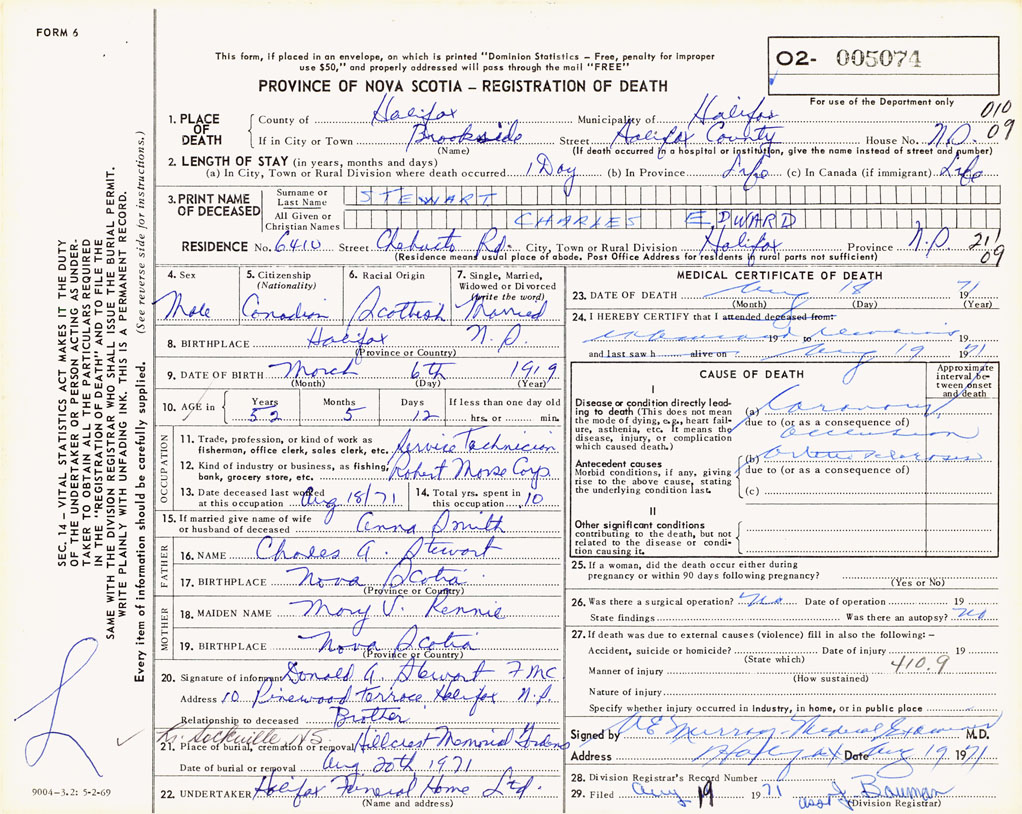 FORM 6
This form, if placed in an envelope, on which is printed "Dominion Statistics – Free, penalty for improper
use $50," and properly addressed will pass through the mail "FREE"
O2- 005074
PROVINCE OF NOVA SCOTIA – REGISTRATION OF DEATH
For use of the Department only
010
09
1. PLACE OF DEATH
County of Halifax Municipality of Halifax
If in City or Town Brookside Street Halifax County House No. N.S.
(Name) (If death occurred in a hospital or institution, give the name instead of street and number)
2. LENGTH OF STAY (in years, months and days)
(a) In City, Town or Rural Division where death occurred 1 Day (b) In Province Life (c) In Canada (if immigrant) Life
3. PRINT NAME OF DECEASED
Surname or Last Name STEWART
All Given or Christian Names CHARLES EDWARD
RESIDENCE No. 6410 Street Chebucto Rd. City, Town or Rural Division Halifax Province N.S. 211
09
(Residence means usual place of abode. Post Office Address for residents in rural parts not sufficient)
4. Sex Male
5. Citizenship (Nationality) Canadian
6. Racial Origin Scottish
7. Single, Married, Widowed or Divorced (write the word) Married
8. BIRTHPLACE Halifax N.S.
(Province or Country)
9. DATE OF BIRTH March 6th 1919
(Month) (Day) (Year)
10. AGE in Years 52 Months 5 Days 12 If less than one day old hrs. or min.
OCCUPATION
11. Trade, profession, or kind of work as fisherman, office clerk, sales clerk, etc. Service Technician
12. Kind of industry or business, as fishing, bank, grocery store, etc. Robert Morse Corp.
13. Date deceased last worked at this occupation Aug 18/71
14. Total yrs. spent in this occupation 10
15. If married give name of wife or husband of deceased Anna Smith
FATHER
16. NAME Charles A. Stewart
17. BIRTHPLACE Nova Scotia
(Province or Country)
MOTHER
18. MAIDEN NAME Mary J. Rennie
19. BIRTHPLACE Nova Scotia
(Province or Country)
20. Signature of informant Donald A. Stewart
Address 10 Pinewood Terrace Halifax N.S.
Relationship to deceased Brother
Sackville NS
21. Place of burial, cremation or removal Hillcrest Memorial Gardens
Date of burial or removal Aug 20th 1971
22. UNDERTAKER Halifax Funeral Home Ltd.
(Name and address)
MEDICAL CERTIFICATE OF DEATH
23. DATE OF DEATH Aug 18 1971
(Month) (Day) (Year)
24. I HEREBY CERTIFY that I attended deceased from:
examined remains 19 to
and last saw h alive on Aug 19 1971
CAUSE OF DEATH
Approximate interval between onset and death
I
Disease or condition directly leading to death (This does not mean the mode of dying, e.g., heart failure, asthenia, etc. It means the disease, injury, or complication which caused death.)
(a) Coronary
due to (or as a consequence of)
occlusion
Antecedent causes
Morbid conditions, if any, giving rise to the above cause, stating the underlying condition last.
(b)
due to (or as a consequence of)
(c)
II
Other significant conditions contributing to the death, but not related to the disease or condition causing it.
25. If a woman, did the death occur either during pregnancy or within 90 days following pregnancy?
(Yes or No)
26. Was there a surgical operation? No Date of operation 19
State findings Was there an autopsy? No
27. If death was due to external causes (violence) fill in also the following: –
Accident, suicide or homicide? Date of injury 19
(State which)
410.9
Manner of injury
(How sustained)
Nature of injury
Specify whether injury occurred in industry, in home, or in public place
Signed by Murray Medical Examiner M.D.
Address Halifax Date Aug 19 1971
28. Division Registrar's Record Number
29. Filed Aug 19 1971 J. Bauman
(Division Registrar)
SEC. 14 – VITAL STATISTICS ACT MAKES IT THE DUTY
OF THE UNDERTAKER OR PERSON ACTING AS UNDER-
TAKER TO OBTAIN ALL THE PARTICULARS REQUIRED
IN THE "REGISTRATION OF DEATH" AND TO FILE THE
SAME WITH THE DIVISION REGISTRAR WHO SHALL ISSUE THE BURIAL PERMIT.
WRITE PLAINLY WITH UNFADING INK. THIS IS A PERMANENT RECORD.
Every item of information should be carefully supplied. (See reverse side for instructions.)
9004–3.2: 5-2-69